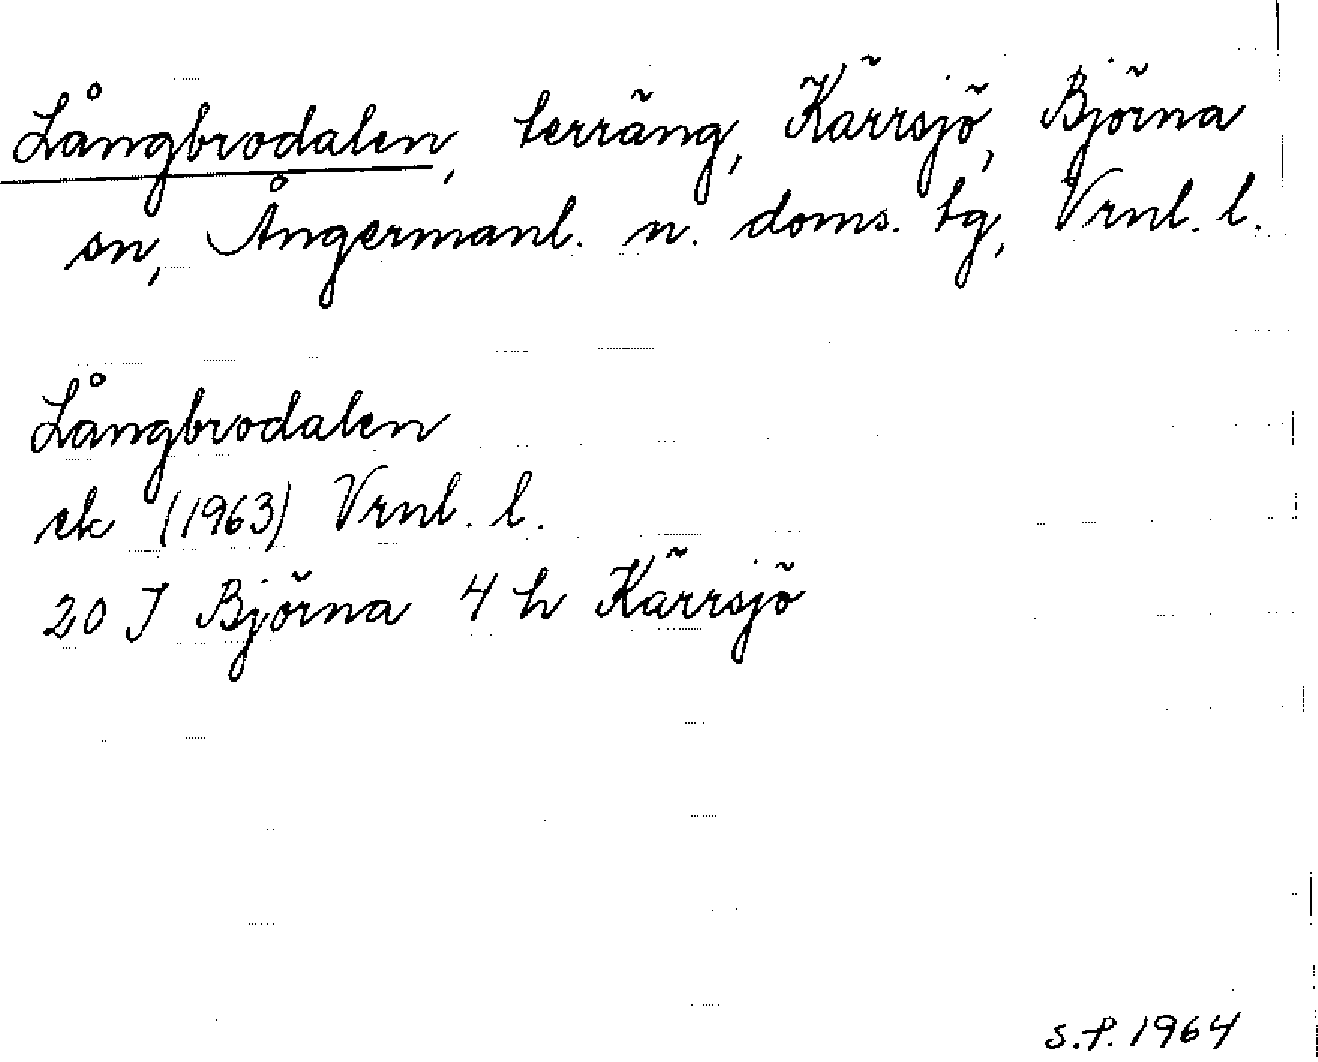 Långbrodalen, terräng, Kärrsjö, Björna
sn, Ångermanl. n. doms. tg, Vrnl. l.
Långbrodalen
ek (1963) Vrnl. l.
20 J Björna 4 h Kärrsjö
S.P. 1964